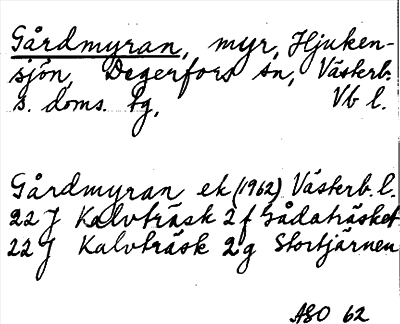 Gårdmyran, myr, Hjuken-
sjön, Degerfors sn, Västerb.
s. doms. tg, Vb l.
Gårdmyran ek (1962) Västerb. l.
22 J Kalvträsk 2 f Gådaträsket
22 J Kalvträsk 2 g Stortjärnen
ASO 62